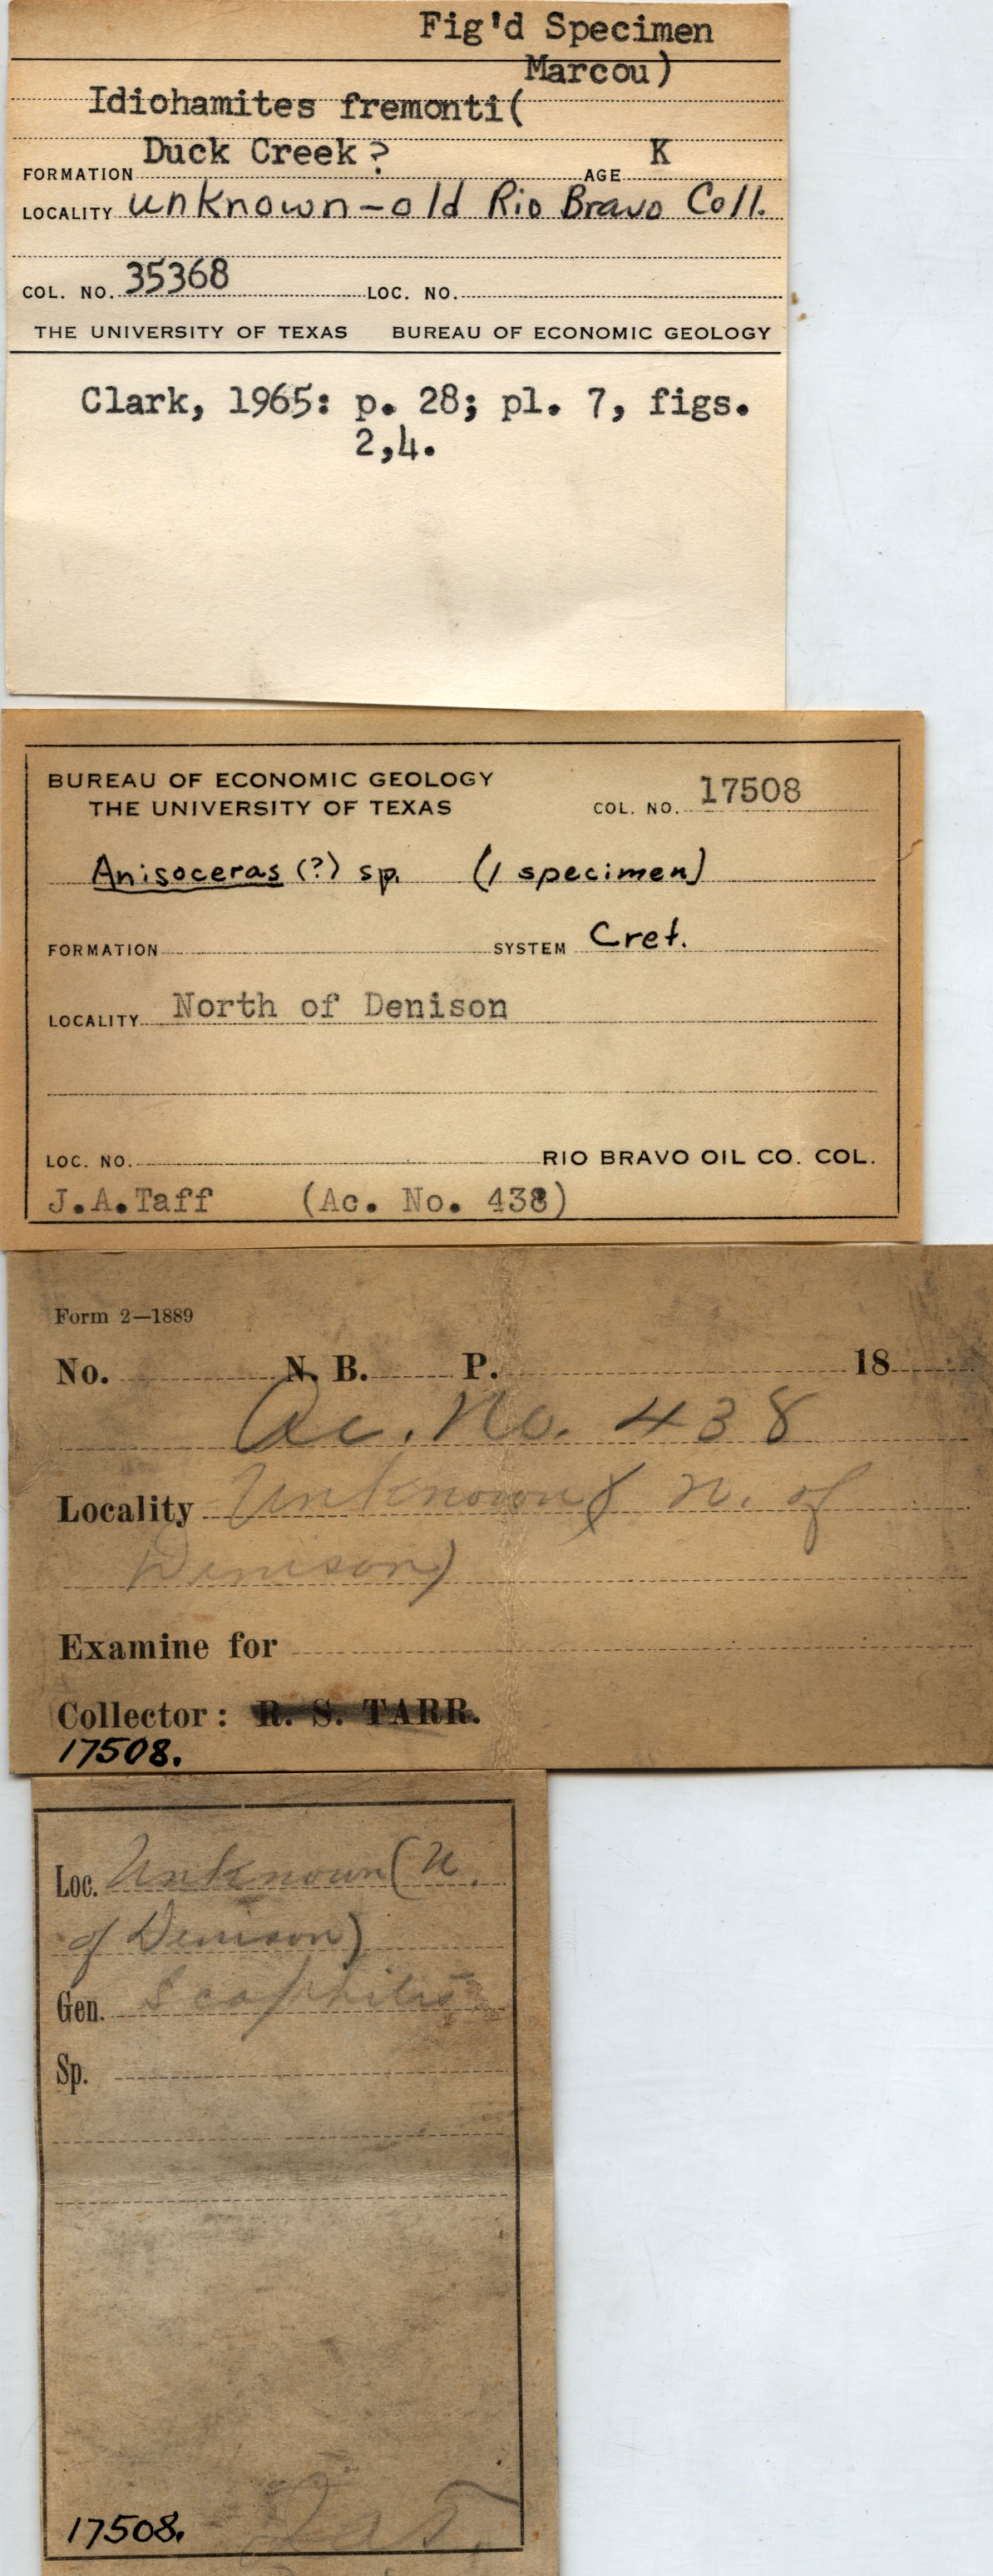 Fig'd Specimen
Marcou)
Idiohamites fremonti(
FORMATION Duck Creek? AGE K
LOCALITY unknown-old Rio Bravo Coll.
COL. NO. 35368 LOC. NO.
THE UNIVERSITY OF TEXAS BUREAU OF ECONOMIC GEOLOGY
Clark, 1965: p. 28; pl. 7, figs.
2,4.
BUREAU OF ECONOMIC GEOLOGY
THE UNIVERSITY OF TEXAS COL. NO. 17508
Anisoceras (?) sp. (1 specimen)
FORMATION SYSTEM Cret.
LOCALITY North of Denison
LOC. NO. RIO BRAVO OIL CO. COL.
J.A.Taff (Ac. No. 438)
Form 2—1889
No. N. B. P. 18
Ac. No. 438
Locality Unknown( N. of
Denison)
Examine for
Collector: R. S. TARR.
17508.
Loc. Unknown (N.
of Denison)
Gen. Scaphites
Sp.
17508.